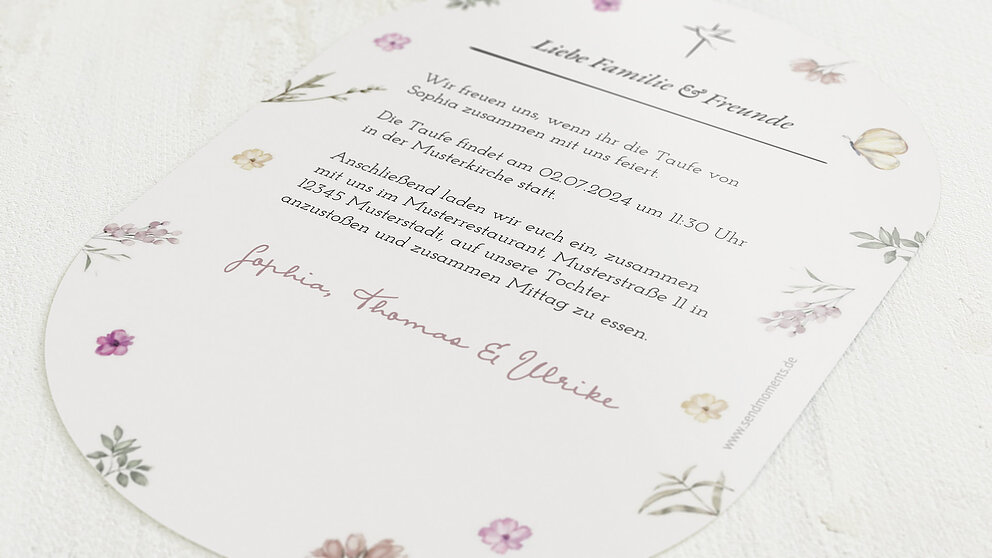 Liebe Familie & Freunde
Wir freuen uns, wenn ihr die Taufe von
Sophia zusammen mit uns feiert.
Die Taufe findet am 02.07.2024 um 11:30 Uhr
in der Musterkirche statt.
Anschließend laden wir euch ein, zusammen
mit uns im Musterrestaurant, Musterstraße 11 in
12345 Musterstadt, auf unsere Tochter
anzustoßen und zusammen Mittag zu essen.
Sophia, Thomas & Ulrike
www.sendmoments.de